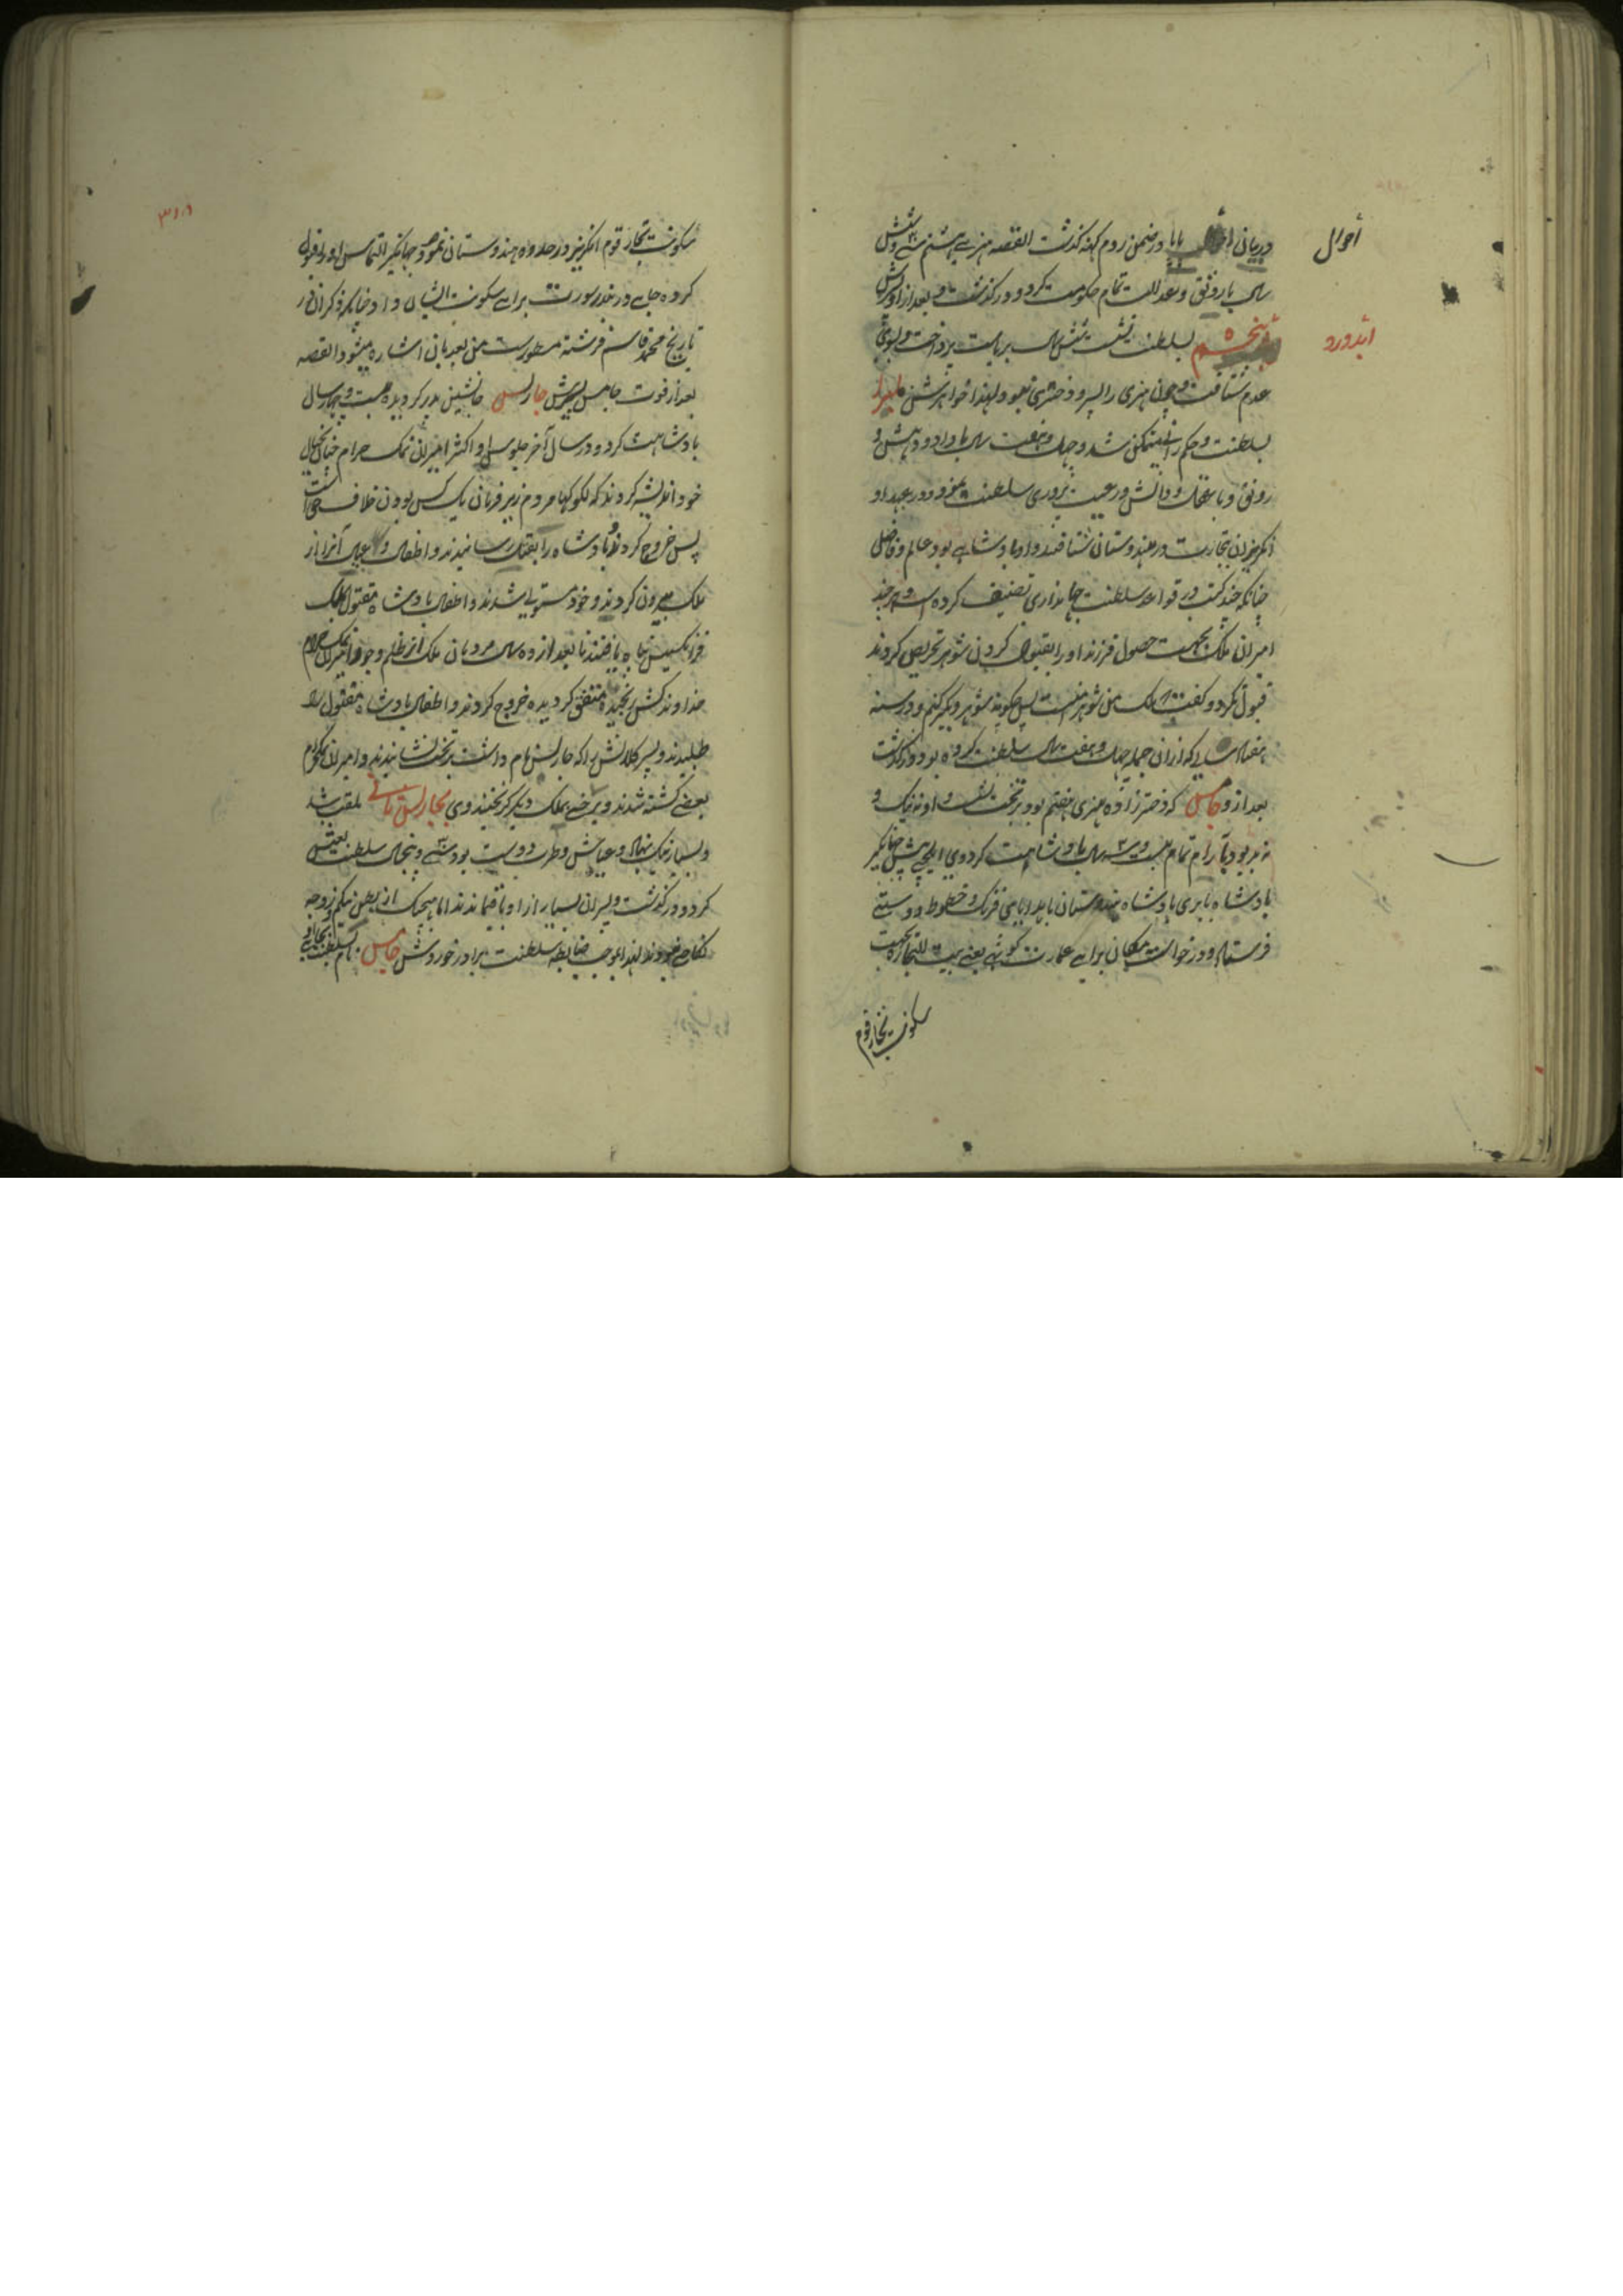 احوال
در بیان احوال بابا در ضمن روم کهنه گذشت القصه هنری هشتم سی و شش
سال با رونق و عدالت تمام حکومت کرد و در گذشت و بعد از او پسرش
ایدورد
پنجم بسلطنت نشست شش سال بریاست پرداخت و بسوی
عدم شتافت و چون هنری را پسر و دختری نبود لهذا خواهرش
بسلطنت و حکمرانی متمکن شد و چهل و هفت سال با داد و دهش و
رونق و با عقل و دانش و رعیت پروری سلطنت نمود و در عهد او
انگریزان بتجارت در هندوستان شتافتند و او پادشاهی بود عالم و فاضل
چنانکه چند کتب در قواعد سلطنت و جهانداری تصنیف کرده است و هر چند
امیران ملک بجهت حصول فرزند او را بقبول کردن شوهر تحریص کردند
قبول نکرد و گفت ملک من شوهر منست پس چگونه شوهر دیگر کنم و در سنه
هفتاد سالگی که ازان جمله چهل و هفت سال سلطنت کرده بود در گذشت
بعد از و جامس که دختر زاده هنری هفتم بود بر تخت نشست و او نزدیک و
مدبر بود با رام تمام بیست و سه سال پادشاهت کرد وی ایلچی پیش جهانگیر
پادشاه بابری پادشاه هندوستان با هدایای فرنگ و خطوط دوستی
فرستاد و درخواست مکان برای عمارت کوتهی یعنی بیت التجاره بجهت
سکونت تجار قوم
سکونت تجار قوم انگریز در حدود هندوستان نمود و جهانگیر التماس او را قبول
کرده جایی در بندر سورت برای سکونت ایشان داد چنانکه ذکر آن در
تاریخ محمد قاسم فرشته مسطور است من بعد بان اشاره میشود القصه
بعد از فوت جامس پسرش چارلس جانشین پدر گردیده بیست و چهار سال
پادشاهت کرد و در سال آخر جلوس او اکثر امیران نمک حرام خیال
خود اندیشه کردند که لکوکها مردم زیر فرمان یک کس بودن خلاف است
پس خروج کردند و پادشاه را بقتل رسانیدند و اطفال و عیال آنرا از
ملک بیرون کردند و خود مستولی شدند و اطفال پادشاه مقتول بملک
فرانسیس پناه یافتند تا بعد از ده سال مردمان ملک از ظلم و جور امیران نمک حرام
خداوند کش رنجیده متفق گردیده خروج کردند و اطفال پادشاه مقتول را
طلبیدند و پسر کلانش را که چارلس نام داشت بر تخت نشانیدند و امیران نمکحرام
بعضی کشته شدند و برخی بملک دیگر گریختند و وی بچارلس ثانی ملقب شد
و بسیار نیک نهاد و عیاش و طرب دوست بود سی و پنج سال سلطنت بعیش
کرد و در گذشت و پسران بسیار از او باقیماندند اما هیچیک از بطن زوجه
نکاحی نبودند لهذا بموجب ضابطه سلطنت برادر خوردش جامس نام بسلطنت بجای او